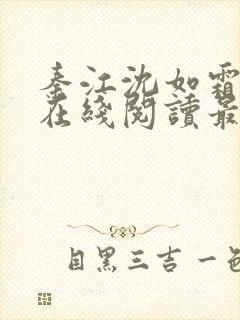 秦江沈如霜
在綫閱讀最
目黑三吉一色